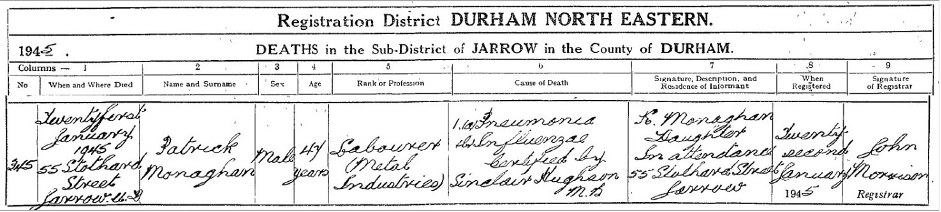 Registration District DURHAM NORTH EASTERN.
1945. DEATHS in the Sub-District of JARROW in the County of DURHAM.
Columns — 1 2 3 4 5 6 7 8 9
No When and Where Died Name and Surname Sex Age Rank or Profession Cause of Death Signature, Description, and Residence of Informant When Registered Signature of Registrar
345
Twentyfirst
January
1945
55 Stothard
Street
Jarrow U.D
Patrick
Monaghan
Male
47
years
Labourer
(Metal
Industries)
1.(a) Pneumonia
(b) Influenzae
Certified by
Sinclair Hughson
M.B
K. Monaghan
Daughter
In attendance
55 Stothard Street
Jarrow
Twenty
second
January
1945
John
Morrison
Registrar